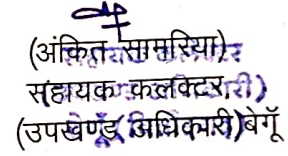 (अंकित सामरिया)
सहायक कलक्टर
(उपखण्ड अधिकारी) बेगूँ